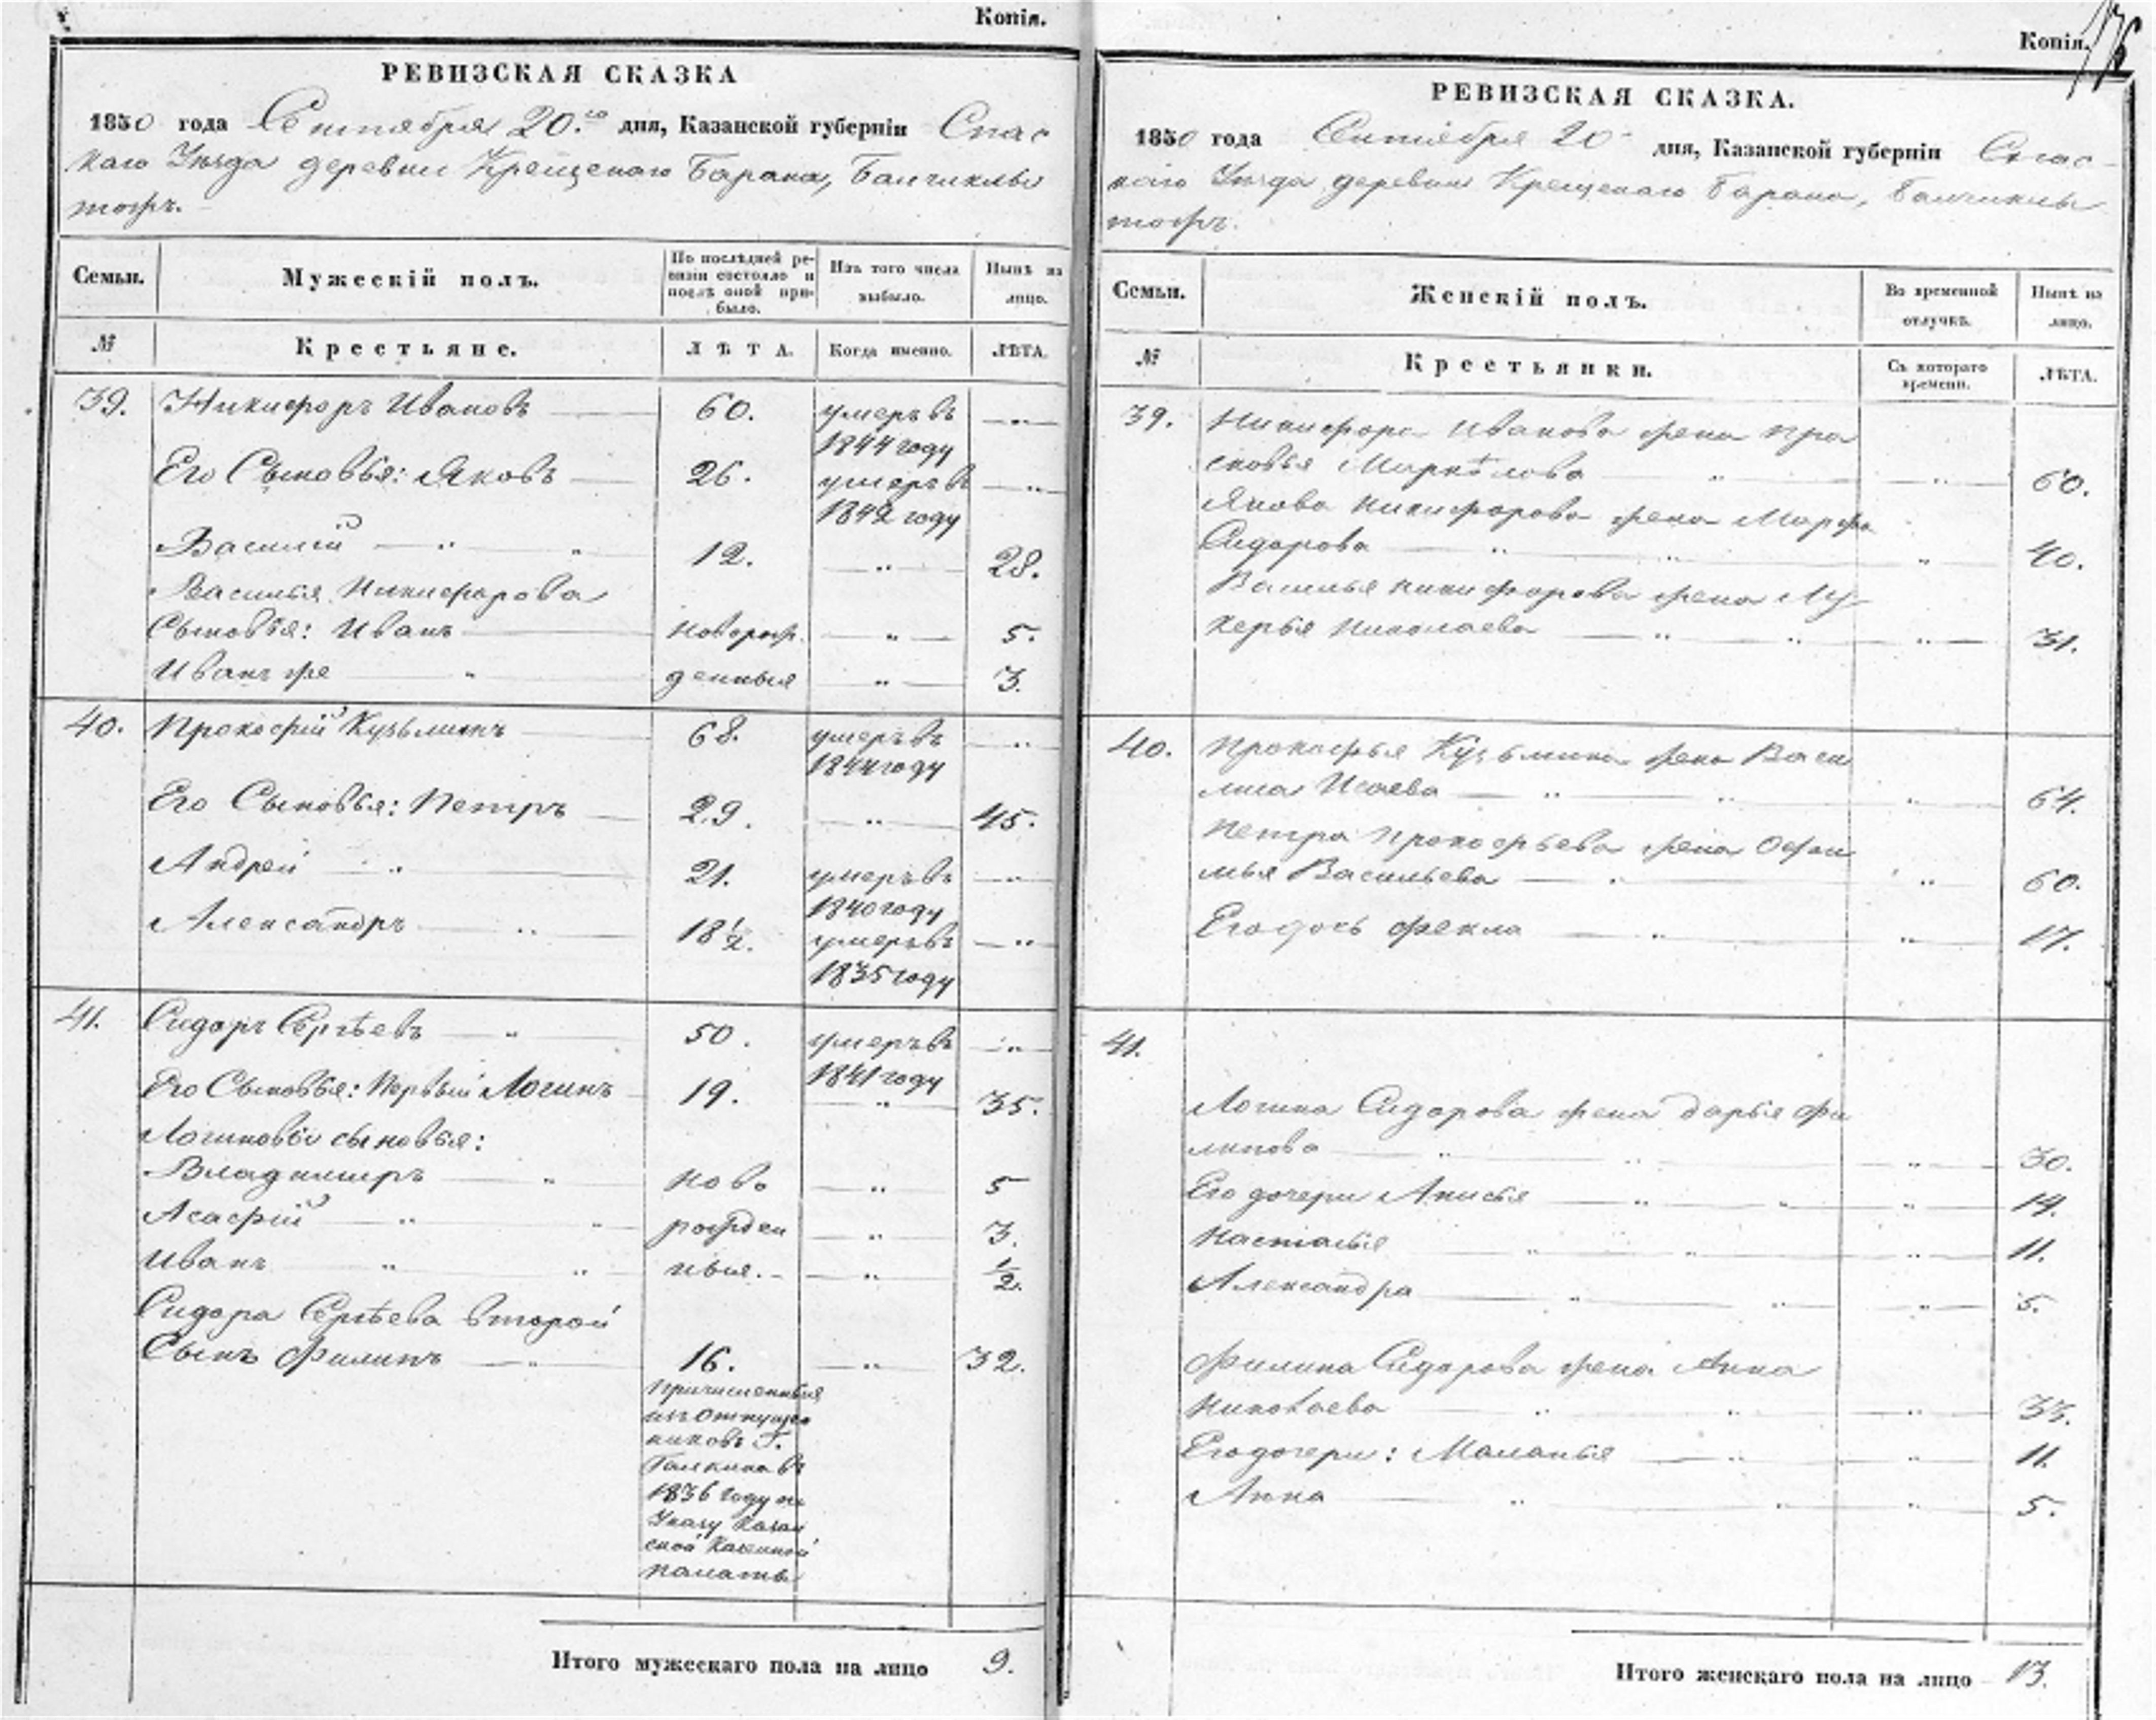 Копія.
РЕВИЗСКАЯ СКАЗКА
1850 года Сентября 20.го дня, Казанской губерніи Спас
каго Уѣзда деревни Крещенаго Барана, Балчиклы
тожъ.
Семьи. Мужескій полъ. По послѣдней ре-
визіи состояло и
послѣ оной при-
было. Изъ того числа
выбыло. Нынѣ на
лицо.
№ Крестьяне. ЛѢТА. Когда именно. ЛѢТА.
39. Никифоръ Ивановъ 60. умеръ въ
1844 году
Его Сыновья: Яковъ 26. умеръ въ
1842 году
Василій 12. 28.
Василья Никифорова
Сыновья: Иванъ новорож. 5.
Иванъ же денныя 3.
40. Прокофій Кузьминъ 68. умеръ въ
1844 году
Его Сыновья: Петръ 29. 45.
Андрей 21. умеръ въ
1840 году
Александръ 18 1/2. умеръ въ
1835 году
41. Сидоръ Сергѣевъ 50. умеръ въ
1841 году
Его Сыновья: Первый Логинъ 19. 35.
Логиновы сыновья:
Владимиръ ново 5
Асафій рожден 3.
Иванъ ныя. 1/2.
Сидора Сергѣева второй
Сынъ Филипъ 16. 32.
Причисленныя
изъ отпущен
никовъ Г.
въ
1836 году по
Указу Казан
ской Казенной
палаты
Итого мужескаго пола на лицо 9.
Копія.
РЕВИЗСКАЯ СКАЗКА.
1850 года Сентября 20 дня, Казанской губерніи Спас-
каго Уѣзда деревни Крещенаго Барана, Балчиклы
тожъ.
Семьи. Женскій полъ. Во временной
отлучкѣ. Нынѣ на
лицо.
№ Крестьянки. Съ котораго
времени. ЛѢТА.
39. Никифора Иванова жена Пра
сковья Маркѣлова 60.
Якова Никифорова жена Марфа
Сидорова 40.
Василья Никифорова жена Лу-
керья Николаева 31.
40. Прокофья Кузьмина жена Васи
лиса Исаева 64.
Петра Прокофьева жена Офи
мья Васильева 60.
Его дочь Фекла 17.
41.
Логина Сидорова жена Дарья Фи
липова 30.
Его дочери Анисья 14.
Настасья 11.
Александра 5.
Филипа Сидорова жена Анна
Николаева 33.
Его дочери: Маланья 11.
Анна 5.
Итого женскаго пола на лицо 13.